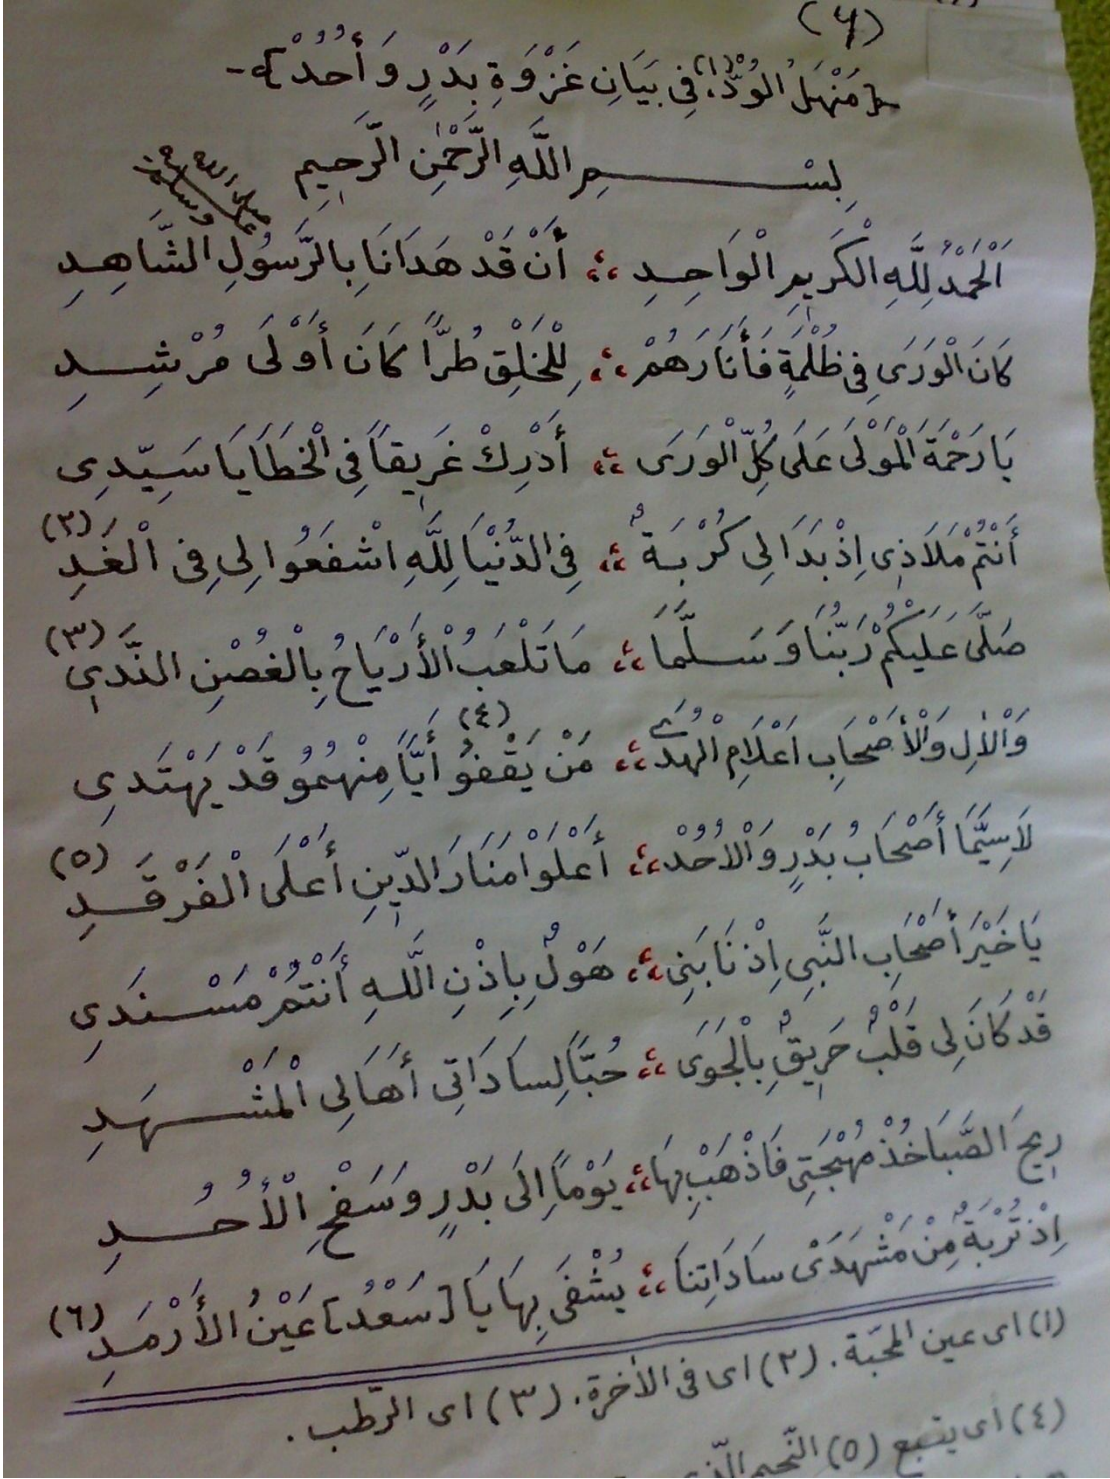 (٦)
{مَنْهَلُ الْوُدِّ(١)، فِي بَيَانِ غَزْوَةِ بَدْرٍ وَأُحُدْ}
بِسْمِ اللَّهِ الرَّحْمٰنِ الرَّحِيمِ
صلى الله عليه وسلم
اَلْحَمْدُ لِلَّهِ الْكَرِيمِ الْوَاحِدِ ،؛، أَنْ قَدْ هَدَانَا بِالرَّسُولِ الشَّاهِدِ
كَانَ الْوَرَى فِى ظُلْمَةٍ فَأَنَارَهُمْ ،؛، لِلْخَلْقِ طُرًّا كَانَ أَوْلَى مُرْشِدِ
يَا رَحْمَةَ الْمَوْلَى عَلَى كُلِّ الْوَرَى ،؛، أَدْرِكْ غَرِيقًا فِى الْخَطَايَا سَيِّدِى
أَنْتُمْ مَلَاذِى اِذْ بَدَا لِى كُرْبَةٌ ،؛، فِى الدُّنْيَا لِلَّهِ اشْفَعُوا لِى فِى الْغَدِ (٢)
صَلَّى عَلَيْكُمْ رَبُّنَا وَسَلَّمَا ،؛، مَا تَلْعَبُ الْأَرْيَاحُ بِالْغُصْنِ النَّدِى (٣)
وَالْاٰلِ وَالْأَصْحَابِ اَعْلَامِ الْهُدَى ،؛، مَنْ يَقْفُ (٤) أَيًّا مِنْهُمُو قَدْ يَهْتَدِى
لَاسِيَّمَا أَصْحَابُ بَدْرٍ وَالْاُحُدْ ،؛، أَعْلَوْا مَنَارَ الدِّينِ أَعْلَى الْفَرْقَدِ (٥)
يَا خَيْرَ أَصْحَابِ النَّبِى اِذْ نَابَنِى ،؛، هَوْلٌ بِاِذْنِ اللَّهِ أَنْتُمْ مَسْنَدِى
قَدْ كَانَ لِى قَلْبٌ حَرِيقٌ بِالْجَوَى ،؛، حُبًّا لِسَادَاتِى أَهَالِى الْمَشْهَدِ
رِيحَ الصَّبَا خُذْ مُهْجَتِى فَاذْهَبْ بِهَا ،؛، يَوْمًا اِلَى بَدْرٍ وَسَفْحِ الْأُحُدِ
اِذْ تُرْبَةٌ مِنْ مَشْهَدَىْ سَادَاتِنَا ،؛، يُشْفَى بِهَا يَا [سَعْدُ] عَيْنُ الْأَرْمَدِ (٦)
(١) اى عين المحبّة. (٢) اى فى الاٰخرة. (٣) اى الرّطب.
(٤) أى يتبع (٥) النّجم الّذى